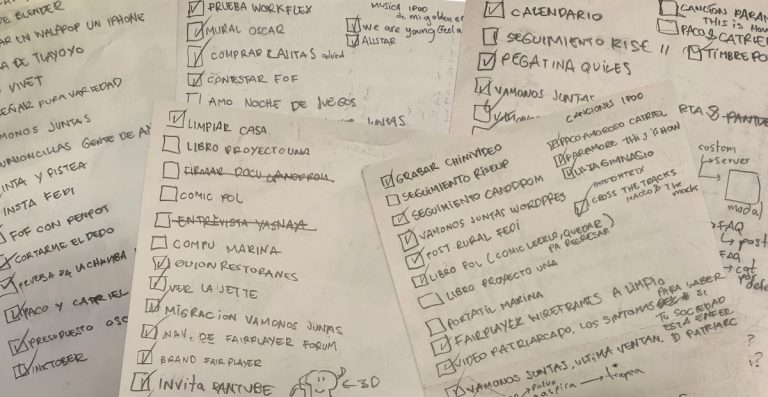 DE BLENDER
AR EN WALAPOP UN IPHONE
A DE TLAYOYO
VIVET
SEÑAR PURA VARIEDAD
MONOS JUNTAS
UNIONCILLAS GENTE DE
INTA Y PISTEA
INSTA FEDI
FOF CON PENPOT
CORTARME EL DEDO
PRUEBA PA LA CHAMBA
PACO Y CATRIEL
PRESUPUESTO OSC
INKTOBER
PRUEBA WORKFLEX
MURAL OSCAR
COMPRAR
CONTESTAR FOF
AMO NOCHE DE JUEGOS
JUNTAS
MUSICA IPOD
de mi golden er
we are young
ALISTAR
CALENDARIO
SEGUIMIENTO RISE !!
PEGATINA QUILES
VAMONOS JUNTAS
CANCION PARAM
THIS is HOW
PACO & CATRIEL
TIMBRE PO
LIMPIAR CASA
LIBRO PROYECTO UNA
FIRMAR DOCU
COMIC POL
ENTREVISTA YASNAYA
COMPU MARINA
GUION RESTORANES
VER LA JETTE
MIGRACION VAMONOS JUNTAS
NAV. DE FAIRPLAYER FORUM
BRAND FAIRPLAYER
INVITA PANTUBE
<-3D
GRABAR CHINIVIDEO
SEGUIMIENTO RISEUP
SEGUIMIENTO CANODROM
VAMONOS JUNTAS WORDPRES
POST RURAL FEDI
LIBRO POL (COMIC LEERLO, QUEDAR)
PA REGRESAR
LIBRO PROYECTO UNA
PORTATIL MARINA
FAIRPLAYER WIREFRAMES A LIMPIO
VIDEO PATRIARCADO. LOS SINTOMAS PARA SABER
SI
TU SOCIEDAD
ESTÁ ENFER
D PATRIARC
VAMONOS JUNTAS, ULTIMA VENTAN.
CANCIONES IPOD
PACO AMOROSO CATRIEL
PARAMORE THIS is HOW
LUJA GIMNASIO
CROSS THE TRACKS
MACEO & THE
MACKS
costom
server
modal
FAQ
post
FAQ
cat
?
?
polvo
aspira
trapea